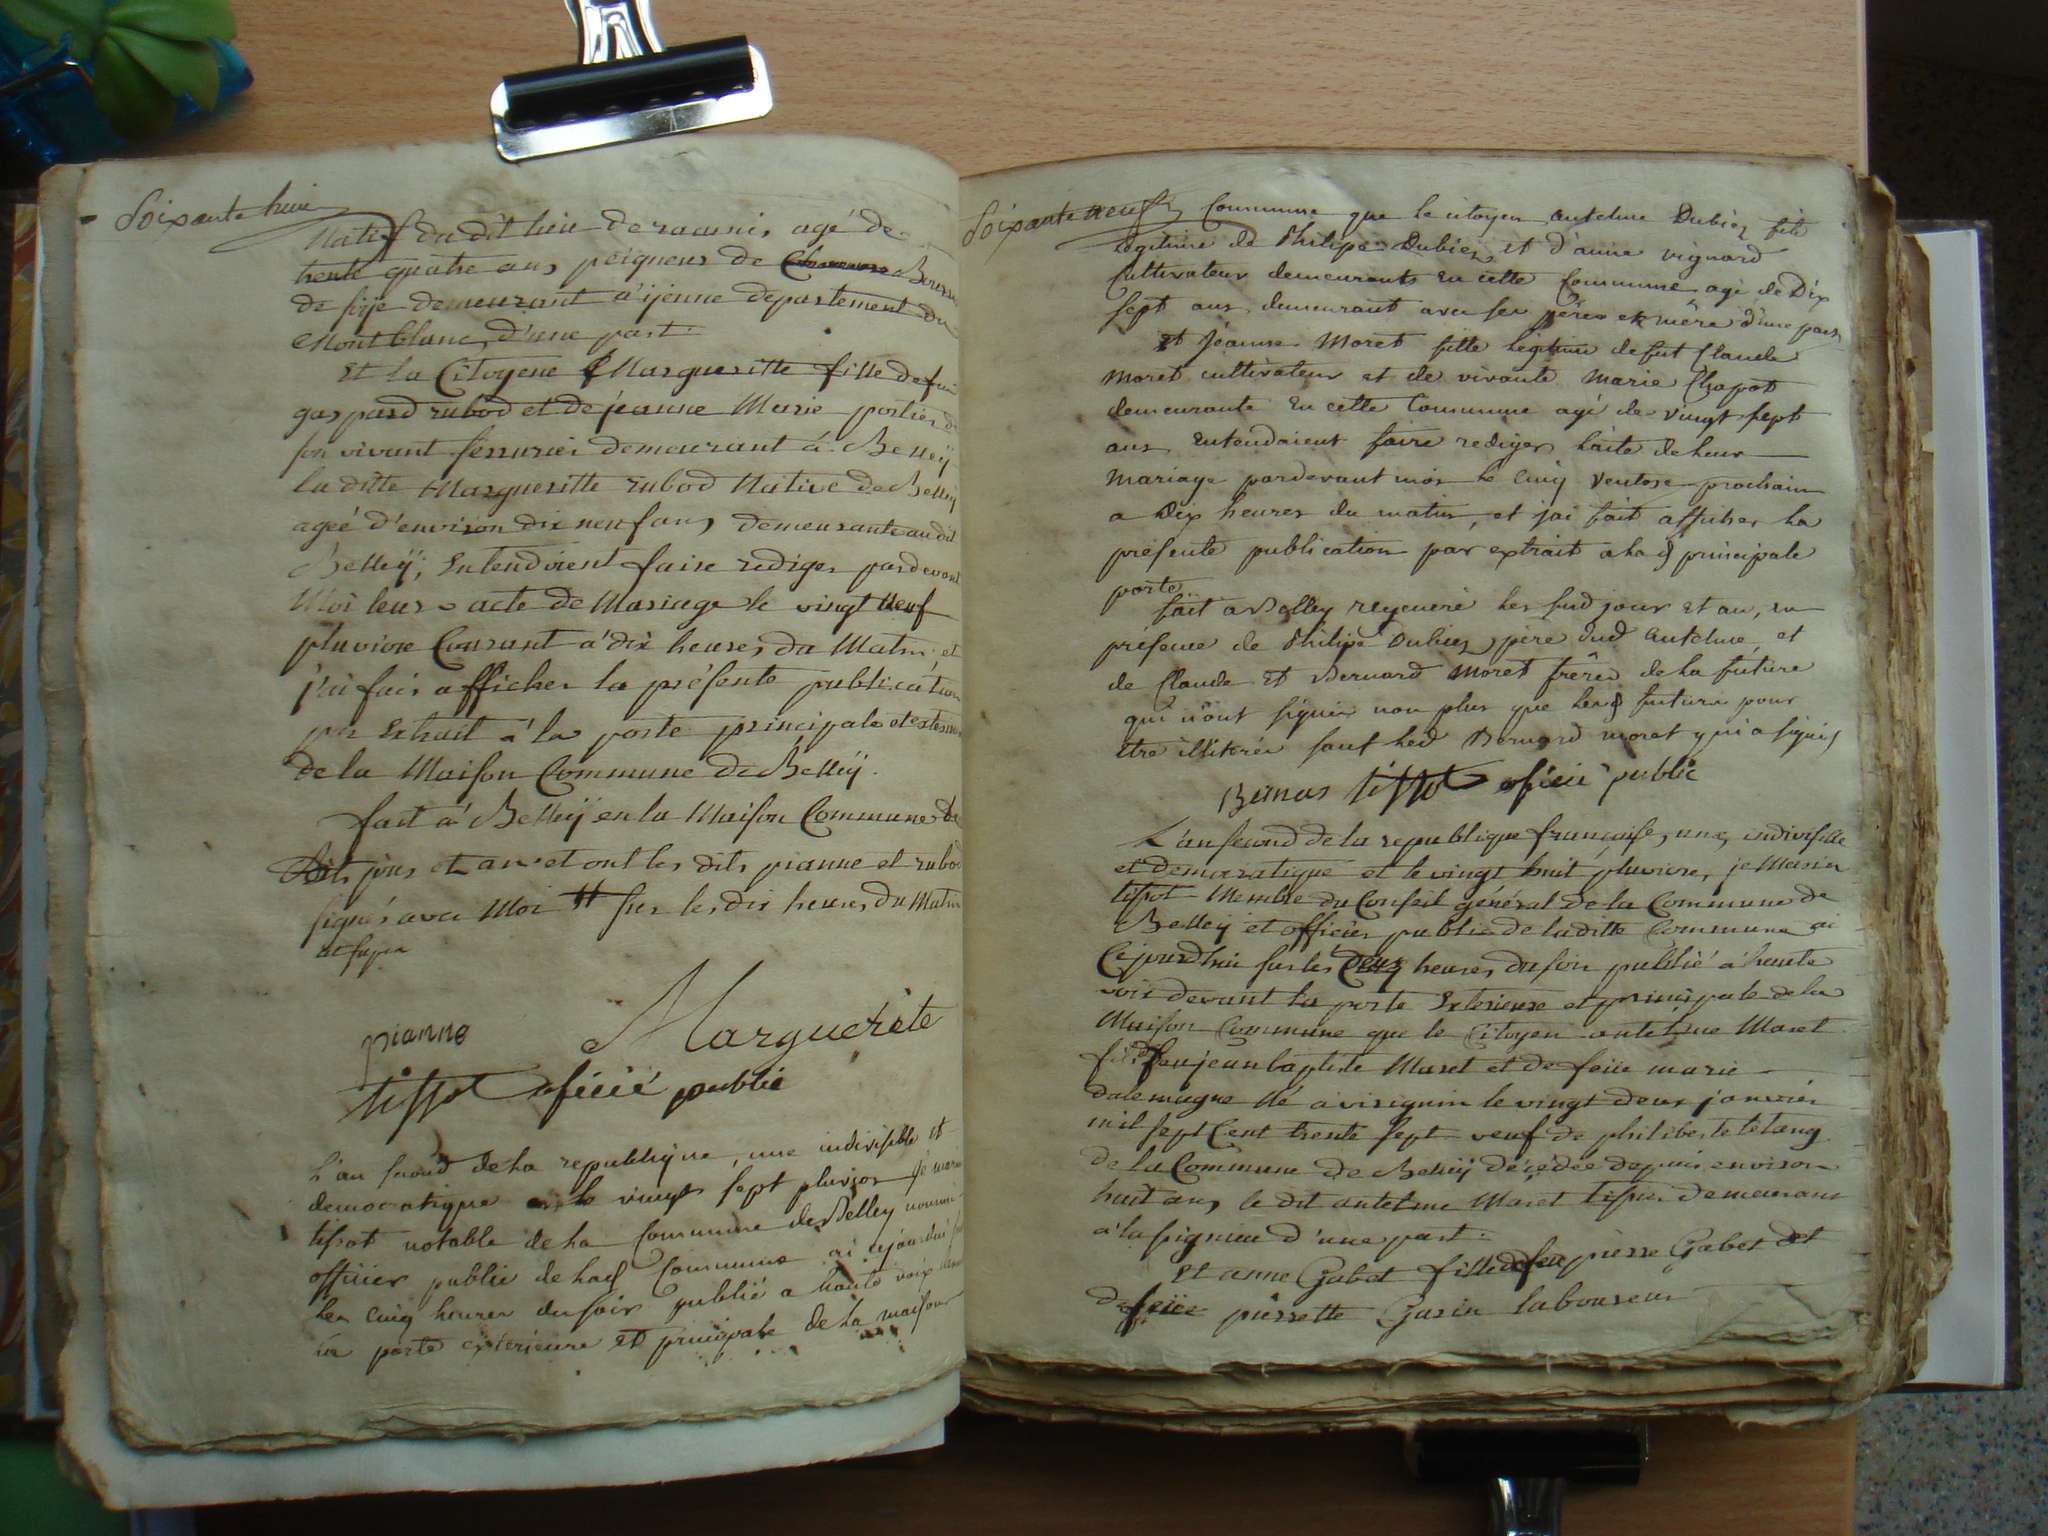 Soixante huit
Natif du dit lieu de agé de
trente quatre ans peigneur de Bourre
de soije demeurant a ijenne departement du
Montblanc, d'une part.
Et la Citoyene Margueritte fille de feu
gaspard rubod et de jeanne Marie portier de
son vivant serrurier demeurant á Belleÿ
la ditte Margueritte rubod Native de Belleÿ
ageé d'environ dix neuf ans, demeurante au dit
Belleÿ, Entendoient faire rediger pardevant
Moi leur acte de Mariage le vingt Neuf
pluviose Courant a dix heures du Matin et
j'ai fais afficher la présente publication
par Extrait á la porte principale et exterieure
de la Maison Commune de Belleÿ.
fait á Belleÿ en la Maison Commune de
Dits jour et an et ont les dits pianne et rubod
signés avec Moi sur les dix heures du Matin
pianne Marguerite
tissot oficié public
L'an second de la republique, une indivisible et
democratique le vingt sept pluviose je marin
tissot notable de la Commune de Belley nommé
officier public de lad Commune ai cejourdui sur
les cinq heures du soir publié a haute voix devant
la porte exterieure et principale de la maison
Soixante neuf
Commune que le citoyen antelme Dubiez fils
legitime de Philipe Dubiez et d'anne vignard
Cultivateur demeurants en cette Commune agé de Dix
sept ans, demeurant avec ses pères et mère d'une part
et Jeanne Moret fille legitime de fut Claude
Moret cultivateur et de vivante Marie Chapot
demeurante en cette Commune agé de vingt sept
ans entendaient faire rediger l'acte de leur
Mariage pardevant moi le cinq Ventose prochain
a Dix heures du matin, et jai fait afficher la
présente publication par extrait a la principale
porte
fait a Belley regeneré les sud jour et an, en
présence de Philipe Dubiez père dud antelme, et
de Claude et Bernard Moret frères de la future
qui n'ont signés non plus que les futurs pour
être illiterés sauf led Bernard moret qui a signé
tissot oficié public
L'an second de la republique française, une, indivisible
et democratique et le vingt huit pluviose, je Marin
tissot Membre du Conseil général de la Commune de
Belleÿ et officier public de laditte Commune ai
Cejourd'hui sur les Deux heures du soir publié á haute
voix devant la porte Exterieure et principale de la
Maison Commune que le Citoyen antelme Maret
fils de feu jean baptiste Maret et de feue marie
dalemagne Né a virignin le vingt deux janvier
mil sept Cent trente sept veuf de philiberte létang
de la Commune de Belleÿ décédée depuis environ
huit ans, le dit antelme Maret tissier demeurant
a la d'une part.
Et anne Gabet fille de feu pierre Gabet et
de feue pierrette Garin laboureur